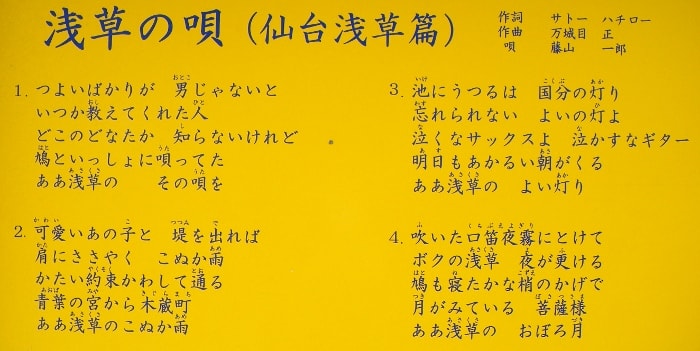 浅草の唄（仙台浅草篇）
作詞　サトー　ハチロー
作曲　万城目　正
唄　藤山　一郎
1. つよいばかりが　男じゃないと
いつか教えてくれた人
どこのどなたか　知らないけれど
鳩といっしょに唄ってた
ああ浅草の　その唄を
2. 可愛いあの子と　堤を出れば
肩にささやく　こぬか雨
かたい約束かわして通る
青葉の宮から木蔵町
ああ浅草のこぬか雨
3. 池にうつるは　国分の灯り
忘れられない　よいの灯よ
泣くなサックスよ　泣かすなギター
明日もあかるい朝がくる
ああ浅草の　よい灯り
4. 吹いた口笛夜霧にとけて
ボクの浅草　夜が更ける
鳩も寝たかな梢のかげで
月がみている　菩薩様
ああ浅草の　おぼろ月